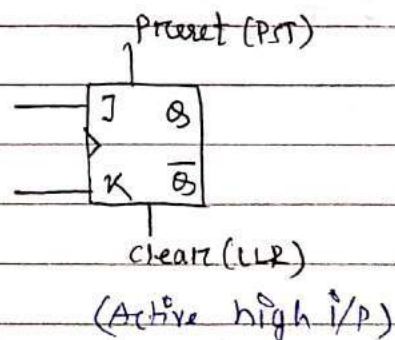 Preset (PST)
J Q
K Q̅
Clear (CLR)
(Active high i/p)